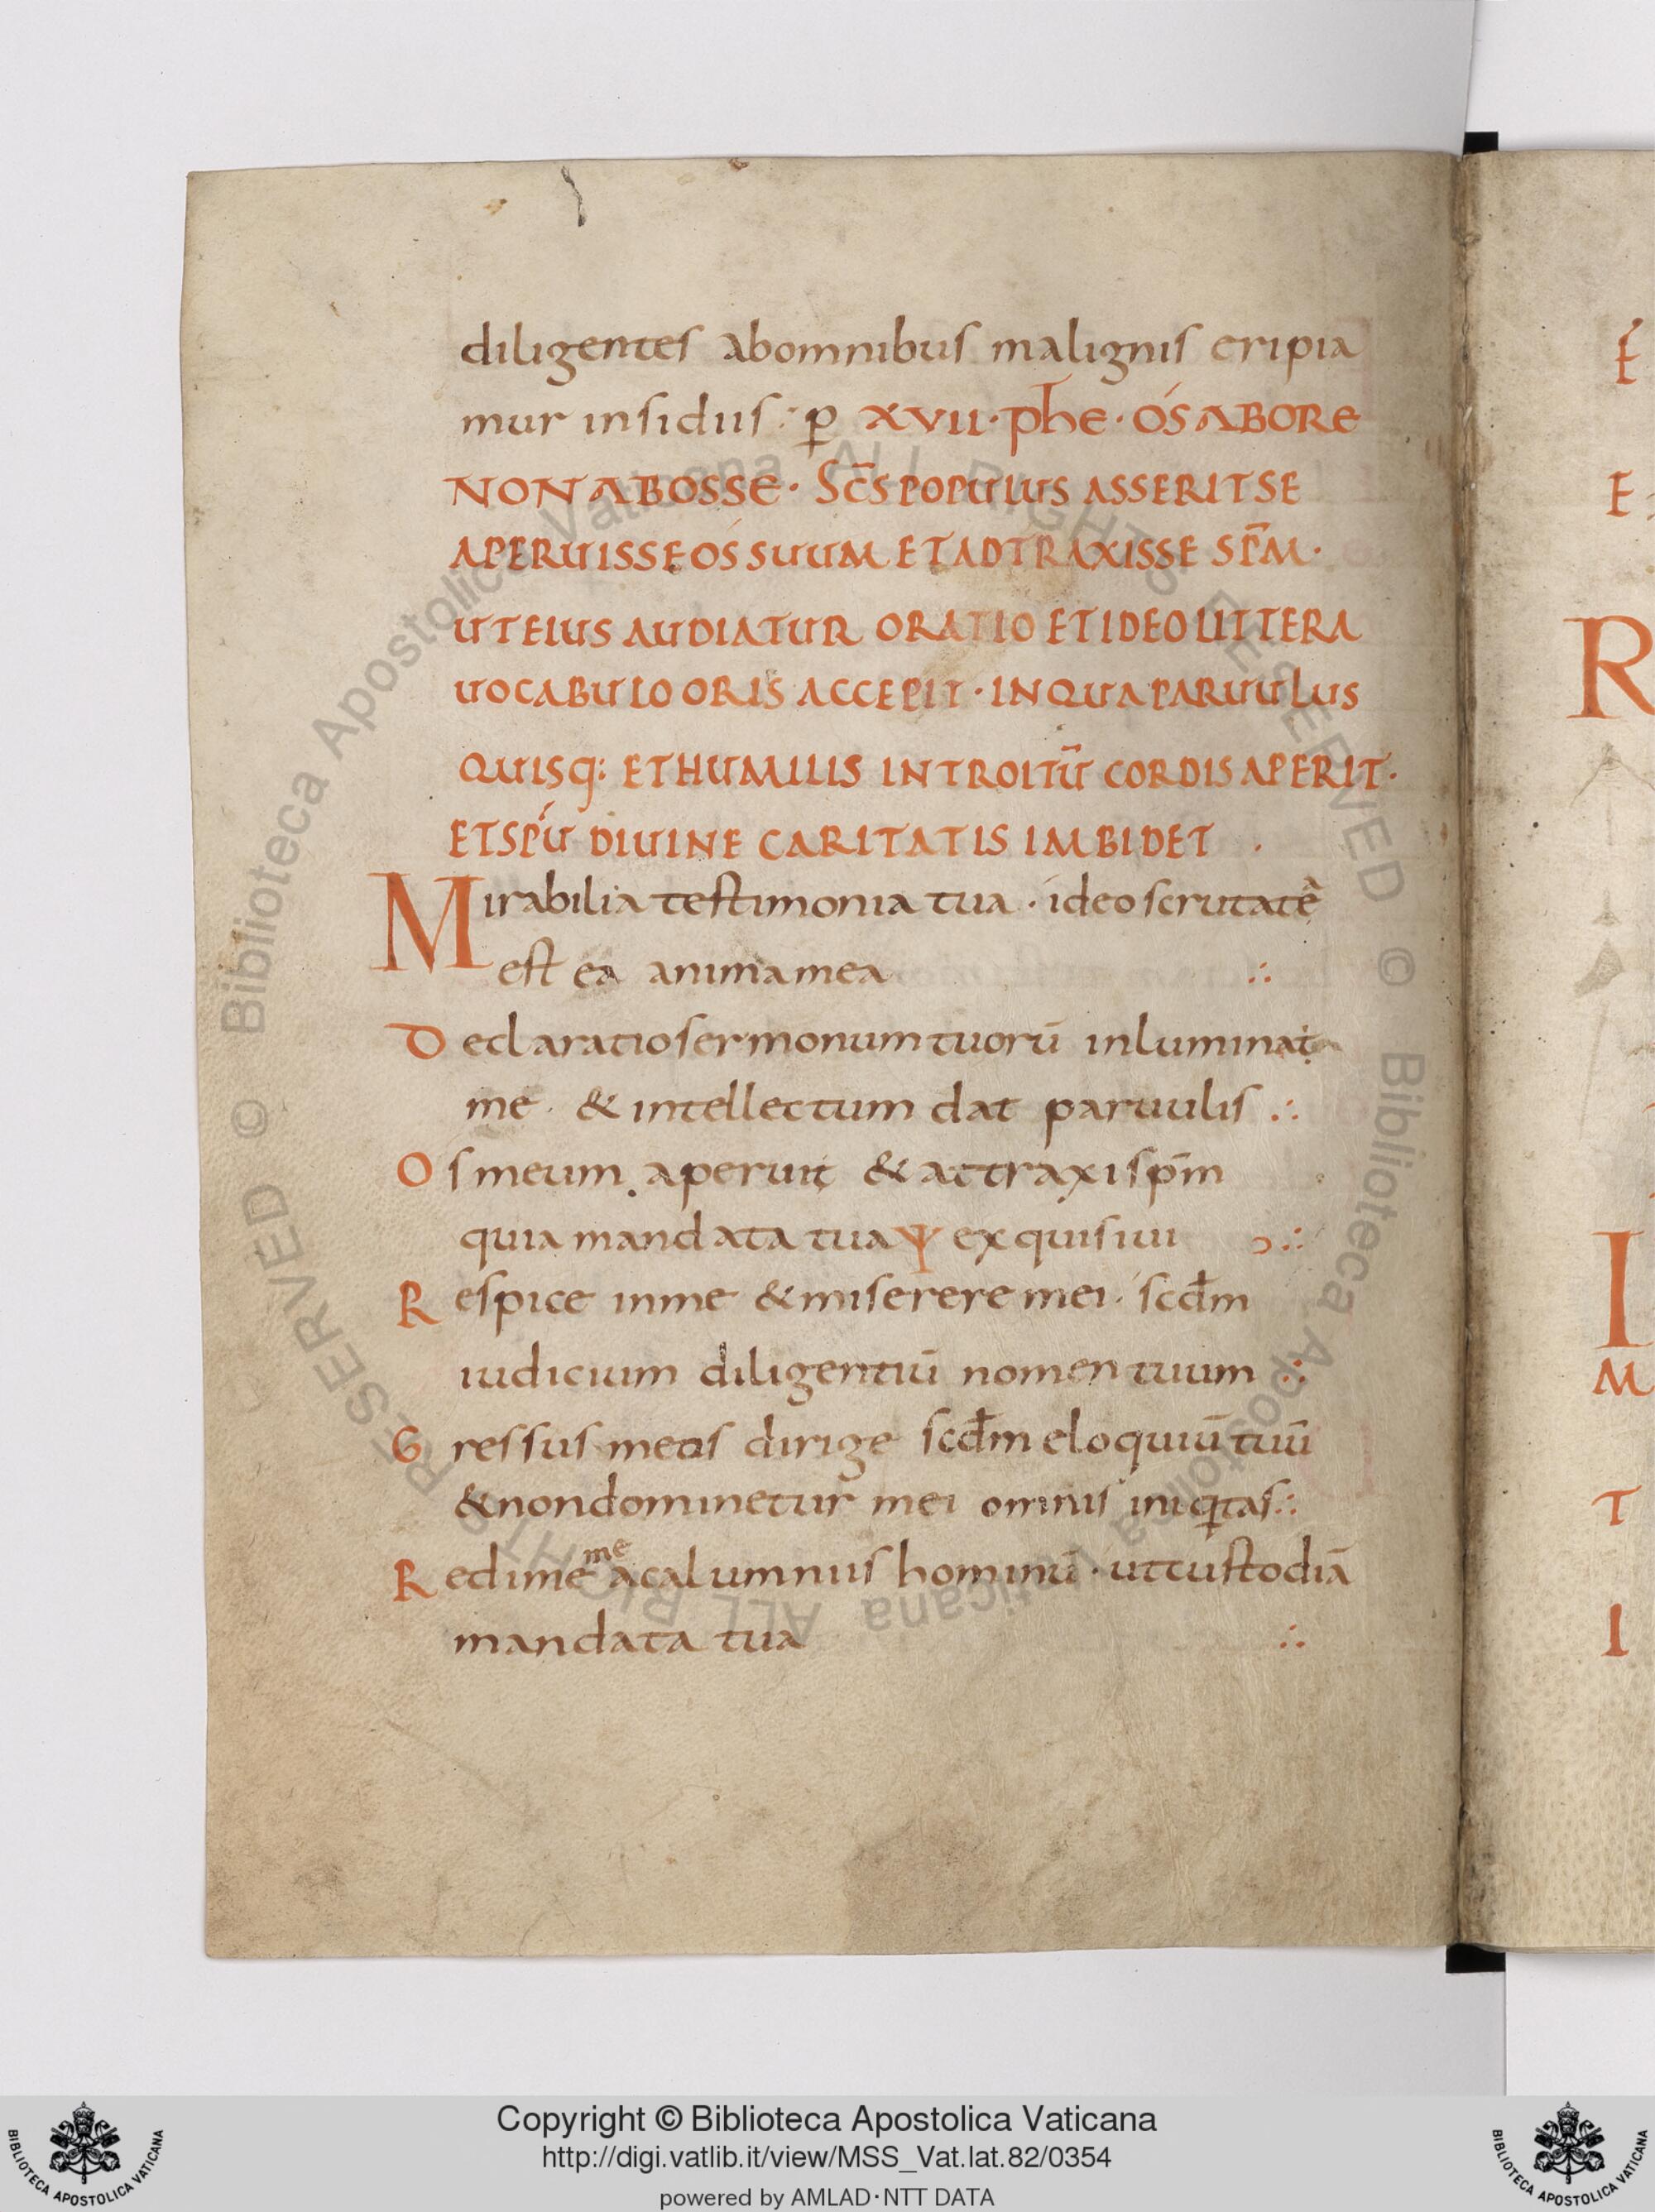 diligentes abomnibus malignis eripia
mur insidiis · p̱ XVII · phe · ÓS ABORE
NON ABOSSE · SC̄S POPULUS ASSERIT SE
APERUISSE ÓS SUUM ET ADTRAXISSE SP̄M ·
UT EIUS AUDIATUR ORATIO ET IDEO LITTERA
UOCABULO ORIS ACCEPIT · IN QUA PARUULUS
QUISQ: ET HUMILIS INTROITŪ CORDIS APERIT ·
ET SPŪ DIUINE CARITATIS IMBIDET
Mirabilia testimonia tua · ideo scrutatę
est ea anima mea ∴
Declaratio sermonum tuorū inluminat
me · & intellectum dat paruulis ∴
Os meum aperuit & attraxi sp̄m
quia mandata tua Ψ exquisiui ∴
Respice inme & miserere mei · scd̄m
iudicium diligentiū nomen tuum ∴
Gressus meos dirige scd̄m eloquiū tuū
& nondominetur mei omnis iniqtas ∴
Redime me acalumniis hominū · utcustodiā
mandata tua ∴
É
E
R
I
M
T
I
© Biblioteca Apostolica Vaticana ALL RIGHTS RESERVED © Biblioteca Apostolica Vaticana ALL RIGHTS RESERVED
Copyright © Biblioteca Apostolica Vaticana
http://digi.vatlib.it/view/MSS_Vat.lat.82/0354
powered by AMLAD·NTT DATA
BIBLIOTECA APOSTOLICA VATICANA
BIBLIOTECA APOSTOLICA VATICANA